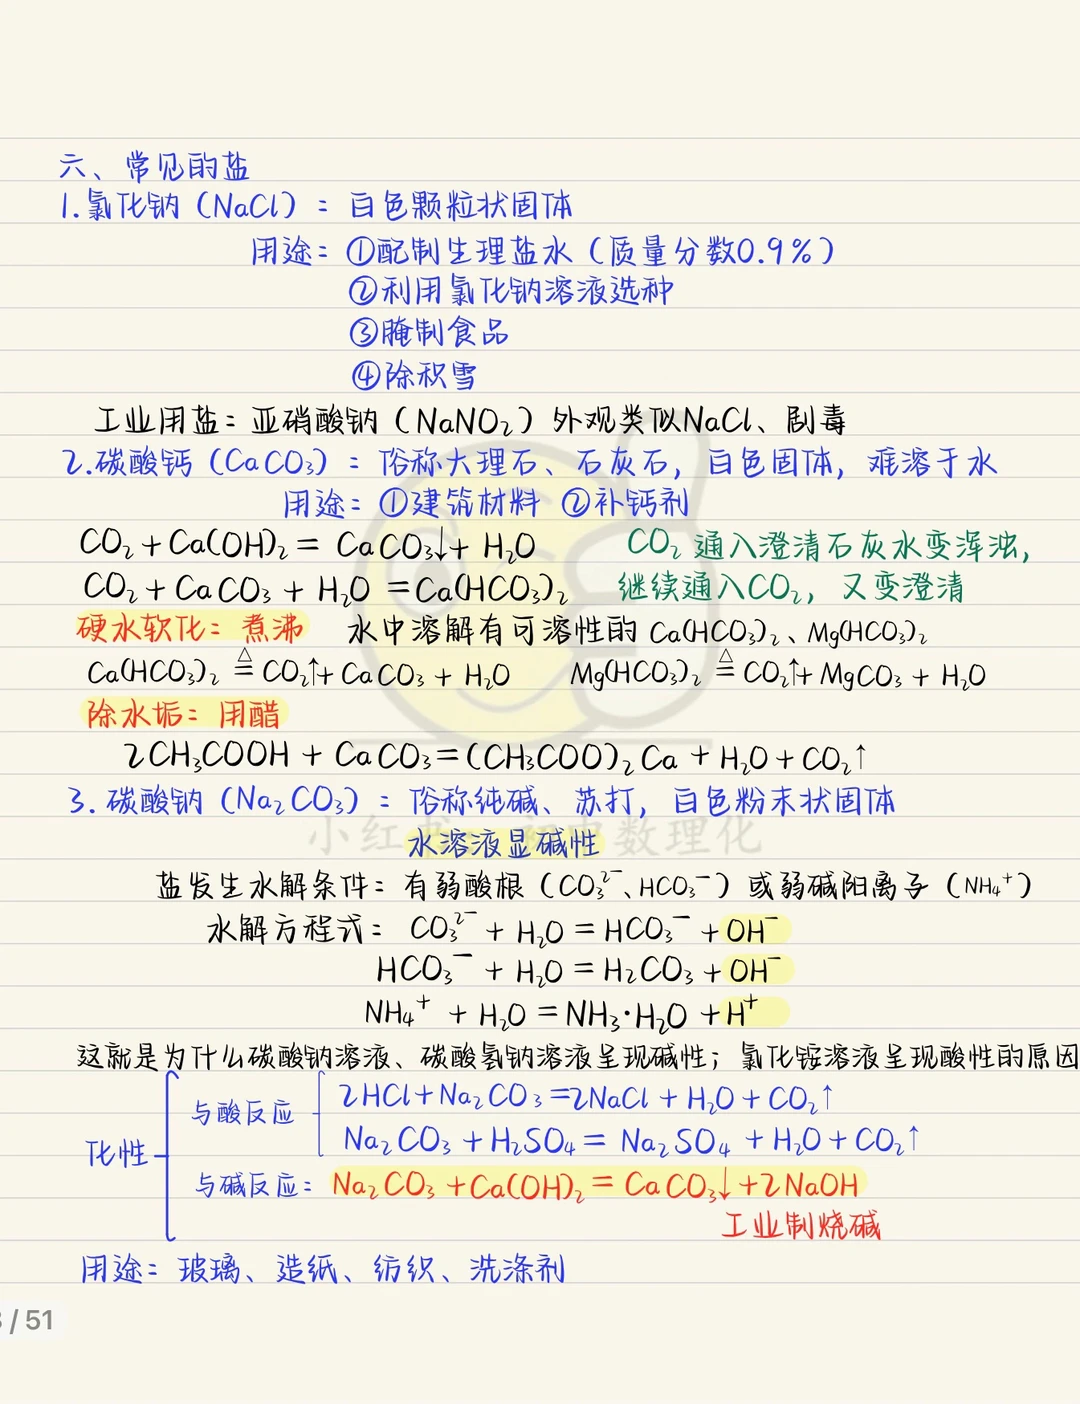 六、常见的盐
1.氯化钠（NaCl）：白色颗粒状固体
用途：①配制生理盐水（质量分数0.9%）
②利用氯化钠溶液选种
③腌制食品
④除积雪
工业用盐：亚硝酸钠（NaNO₂）外观类似NaCl、剧毒
2.碳酸钙（CaCO₃）：俗称大理石、石灰石，白色固体，难溶于水
用途：①建筑材料 ②补钙剂
CO₂+Ca(OH)₂= CaCO₃↓+ H₂O CO₂通入澄清石灰水变浑浊，
CO₂+CaCO₃+H₂O=Ca(HCO₃)₂ 继续通入CO₂，又变澄清
硬水软化：煮沸 水中溶解有可溶性的Ca(HCO₃)₂、Mg(HCO₃)₂
Ca(HCO₃)₂ ≜ CO₂↑+CaCO₃+H₂O Mg(HCO₃)₂ ≜ CO₂↑+MgCO₃+H₂O
除水垢：用醋
2CH₃COOH+CaCO₃=(CH₃COO)₂Ca+H₂O+CO₂↑
3.碳酸钠（Na₂CO₃）：俗称纯碱、苏打，白色粉末状固体
小红书 初中数理化
水溶液显碱性
盐发生水解条件：有弱酸根（CO₃²⁻、HCO₃⁻）或弱碱阳离子（NH₄⁺）
水解方程式：CO₃²⁻+H₂O=HCO₃⁻+OH⁻
HCO₃⁻+H₂O=H₂CO₃+OH⁻
NH₄⁺+H₂O=NH₃·H₂O+H⁺
这就是为什么碳酸钠溶液、碳酸氢钠溶液呈现碱性；氯化铵溶液呈现酸性的原因
化性
与酸反应 2HCl+Na₂CO₃=2NaCl+H₂O+CO₂↑
Na₂CO₃+H₂SO₄=Na₂SO₄+H₂O+CO₂↑
与碱反应：Na₂CO₃+Ca(OH)₂=CaCO₃↓+2NaOH
工业制烧碱
用途：玻璃、造纸、纺织、洗涤剂
/51